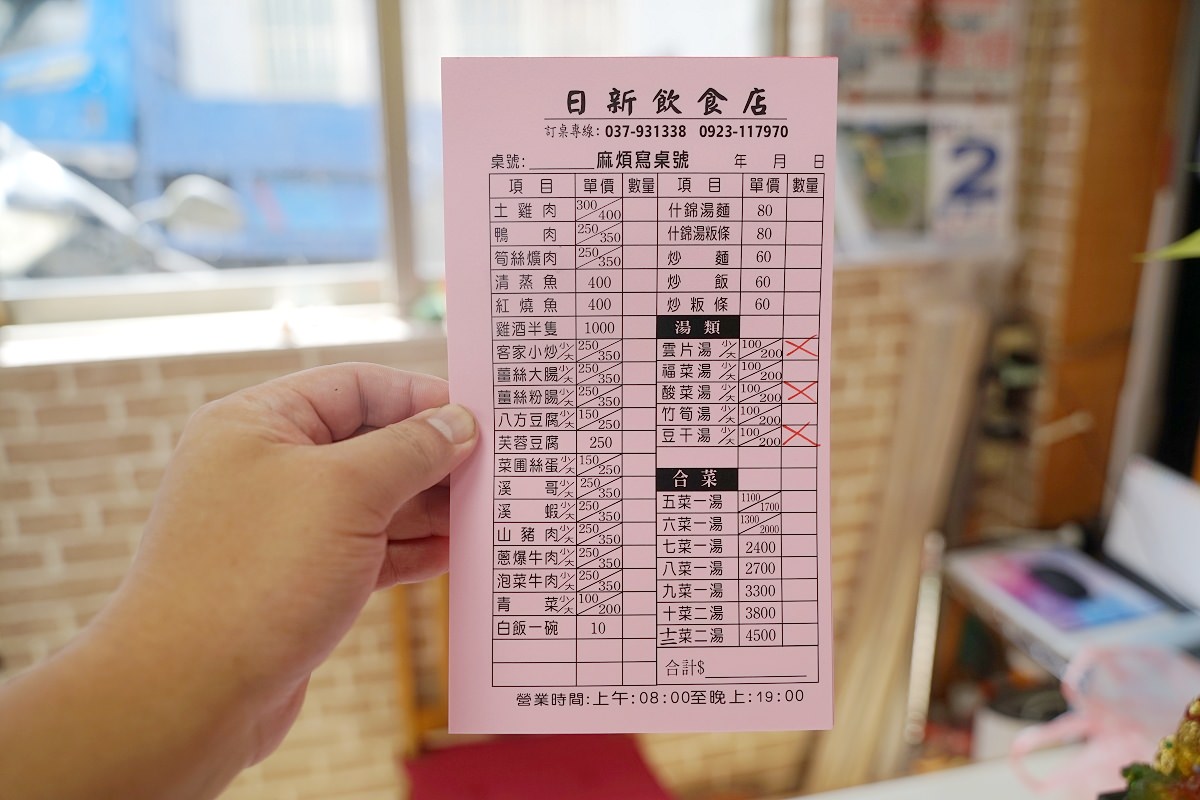 日新飲食店
訂桌專線：037-931338 0923-117970
桌號:______麻煩寫桌號 年 月 日
項目 單價 數量 項目 單價 數量
土雞肉 300/400 什錦湯麵 80
鴨肉 250/350 什錦湯粄條 80
筍絲爌肉 250/350 炒麵 60
清蒸魚 400 炒飯 60
紅燒魚 400 炒粄條 60
雞酒半隻 1000 湯類
客家小炒小/大 250/350 雲片湯小/大 100/200
薑絲大腸小/大 250/350 福菜湯小/大 100/200
薑絲粉腸小/大 250/350 酸菜湯小/大 100/200
八方豆腐小/大 150/250 竹筍湯小/大 100/200
芙蓉豆腐 250 豆干湯小/大 100/200
菜圃絲蛋小/大 150/250 合菜
溪哥小/大 250/350 五菜一湯 1100/1700
溪蝦小/大 250/350 六菜一湯 1300/2000
山豬肉小/大 250/350 七菜一湯 2400
蔥爆牛肉小/大 250/350 八菜一湯 2700
泡菜牛肉小/大 250/350 九菜一湯 3300
青菜小/大 100/200 十菜二湯 3800
白飯一碗 10 十二菜二湯 4500
合計$
營業時間:上午:08:00至晚上:19:00
2